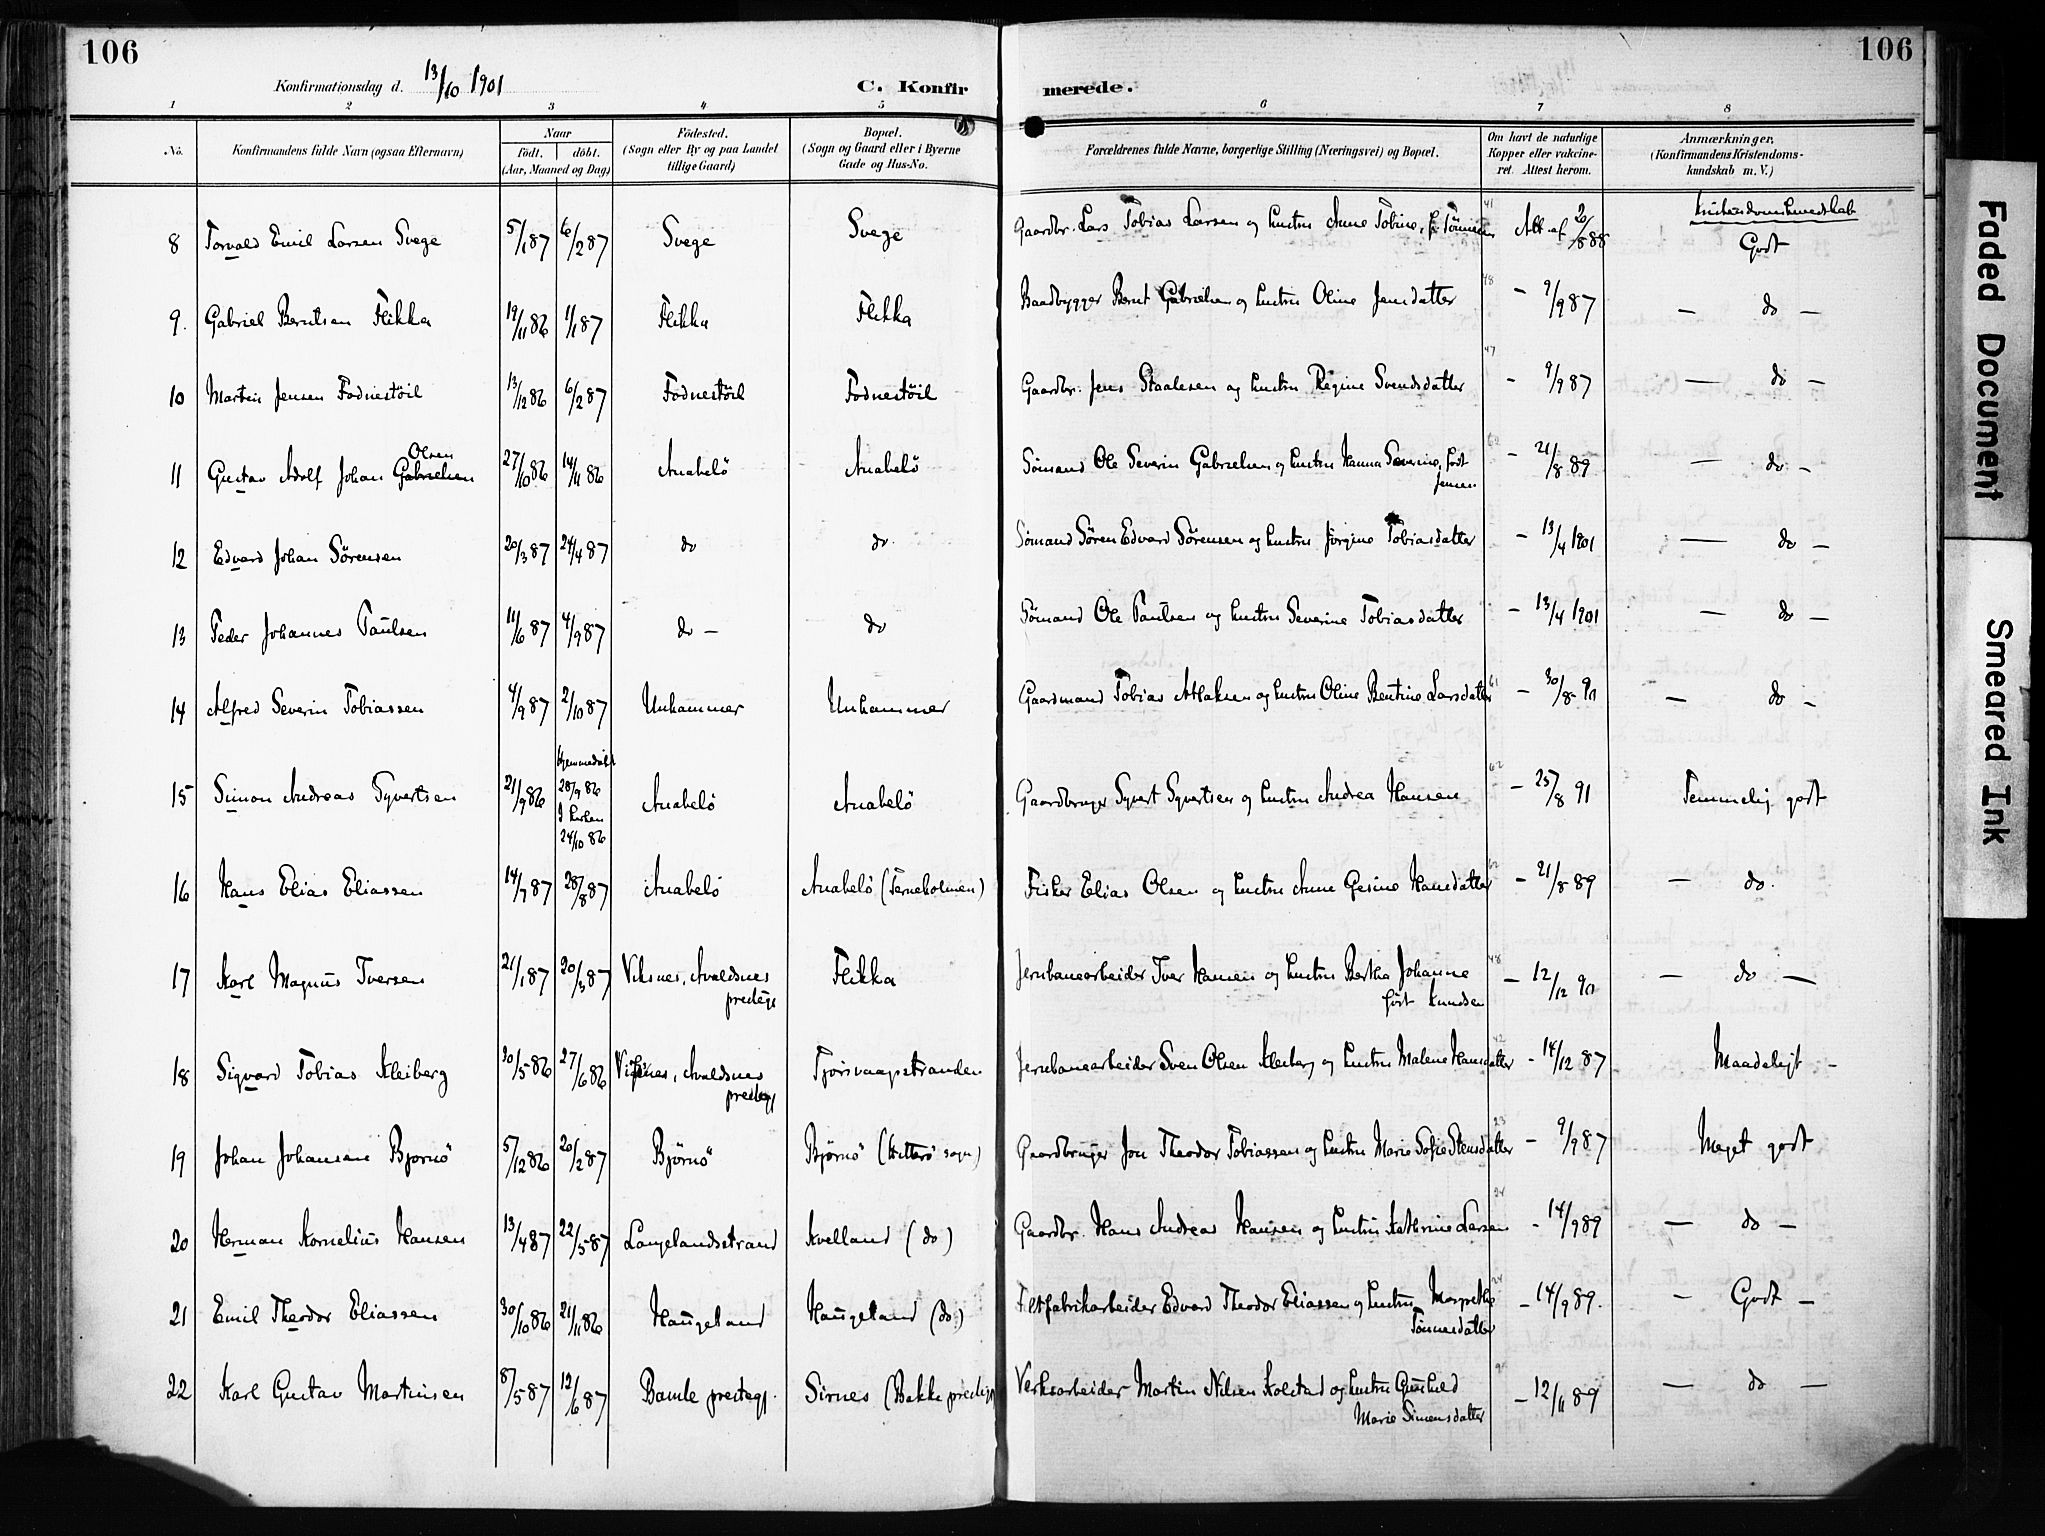 106
106
Konfirmationsdag d. 13/10 1901
C. Konfir merede.
1 2 3 4 5 6 7 8
No. Konfirmandens fulde Navn (ogsaa Efternavn) Naar Födested. Bopæl. Forældrenes fulde Navne, borgerlige Stilling (Næringsvei) og Bopæl. Om havt de naturlige Anmærkninger,
födt. döbt. (Sogn eller By og paa Landet (Sogn og Gaard eller i Byerne Kopper eller vakcine- (Konfirmandens Kristendoms-
(Aar, Maaned og Dag) tillige Gaard) Gade og Hus-No. ret. Attest herom. kundskab m. V.)
Kristendomskundskab
8 Torvald Emil Larsen Svege 5/1 87 6/2 87 Svege Svege Gaardbr. Lars Tobias Larsen og hustru Anne Tobine, f. Tönnesen 41 Att. af 2/8 88 Godt
9. Gabriel Berntsen Flikka 19/11 86 1/1 87 Flikka Flikka Baadbygger Bernt Gabrielsen og hustru Oline Jensdatter 48 — 9/9 87 — do —
10 Martin Jensen Fodnestöil 13/12 86 6/2 87 Fodnestöil Fodnestöil Gaardbr. Jens Staalesen og hustru Regine Svendsdatter 47 — 9/9 87 — do —
Olsen
11 Gustav Adolf Johan Gabrielsen 27/10 86 14/11 86 Anabelö Anabelö Sömand Ole Severin Gabrielsen og hustru Hanna Severine, født 62 — 21/8 89 — do —
Jensen
12 Edvard Johan Sörensen 20/3 87 24/4 87 do do Sömand Sören Edvard Sörensen og hustru Jörgine Tobiasdatter — 13/4 1901 — do —
13 Peder Johannes Paulsen 11/6 87 4/9 87 do — do Sömand Ole Paulsen og hustru Severine Tobiasdatter — 13/4 1901 — do —
14 Alfred Severin Tobiassen 4/9 87 2/10 87 Unhammer Unhammer Gaardmand Tobias Atlaksen og hustru Oline Bentine Larsdatter 61 — 30/8 90 — do —
Hjemmedöbt
15 Simon Andreas Syvertsen 21/9 86 28/9 86 Anabelö Anabelö Gaardbruger Syvert Syvertsen og hustru Andrea Hansen 62 — 25/8 91 Temmelig godt
I kirken
24/10 86
16 Hans Elias Eliassen 14/7 87 28/8 87 Anabelö Anabelö (Terneholmen) Fisker Elias Olsen og hustru Anne Gesine Hansdatter 62 — 21/8 89 — do.
17 Karl Magnus Iversen 21/1 87 20/3 87 Viksnes, Avaldsnes Flikka Jernbanearbeider Iver Hansen og hustru Bertha Johanne 48 — 12/12 90 — do —
prestegj födt Knudsen
18 Sigvard Tobias Kleiberg 30/5 86 27/6 86 Vigsnes, Avaldsnes Fjorsvaagstranden Jernbanearbeider Sven Olsen Kleiberg og hustru Malene Hansdatter 42 — 14/12 87 Maadeligt —
prestegj
19 Johan Johansen Bjornö 5/12 86 20/2 87 Björnö Bjørnö (Hitterö sogn) Gaardbruger Jon Theodor Tobiassen og hustru Marie Sofie Stensdatter 23 — 9/9 87 Meget godt
20 Herman Kornelius Hansen 13/4 87 22/5 87 Langelandsstrand Kvelland (do) Gaardbr. Hans Andreas Hansen og hustru Kathrine Larsen 24 — 14/9 89 — do —
21 Emil Theodor Eliassen 30/10 86 21/11 86 Haugeland Haugeland (do) Filtfabrikarbeider Edvard Theodor Eliassen og hustru Margrethe 24 — 14/9 89. — Godt —
Tönnesdatter
22 Karl Gustav Martinsen 8/5 87 12/6 87 Bamle prestegj. Sirnes (Bakke prestegj) Verksarbeider Martin Nilsen Kolstad og hustru Gunhild — 12/11 89 — do —
Marie Simensdatter
Faded Document
Smeared Ink